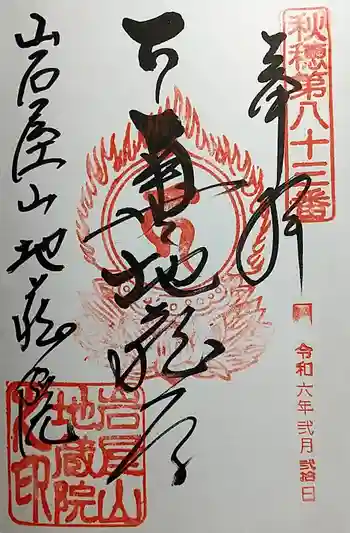 秋穂第八十三番
奉拝
令和六年弐月弐拾日
下萬地蔵尊
山石屋山地蔵院
岩屋山
地蔵院
之印